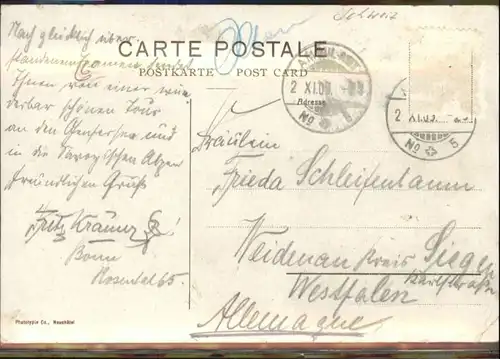 Schweiz
CARTE POSTALE
POSTKARTE POST CARD
Nach glücklich über-
standenem Examen sendet
Ihnen von einer wun
derbar schönen Tour
an den Genfersee und
in die Savoyischen Alpen
freundlichen Gruß
Fritz Krämer
Bonn
Rosental 65.
AMBULANT
2 XI.09.
No 5
Adresse
2 XI.09.
No 5
Fräulein
Frieda Schleifenbaum
Weidenau Kreis Siegen
Westfalen
Allemagne
Phototypie Co., Neuchâtel